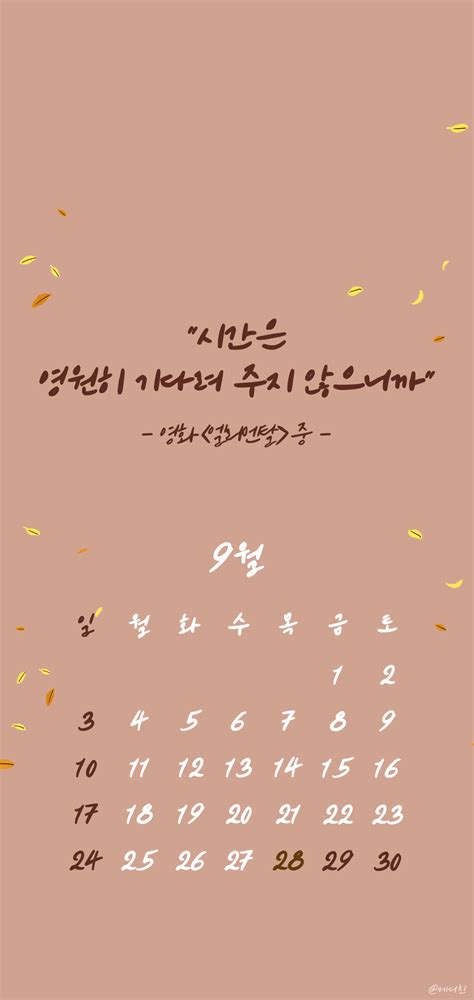 "시간은
영원히 기다려 주지 않으니까"
- 영화 <엘리멘탈> 중 -
9월
일 월 화 수 목 금 토
1 2
3 4 5 6 7 8 9
10 11 12 13 14 15 16
17 18 19 20 21 22 23
24 25 26 27 28 29 30